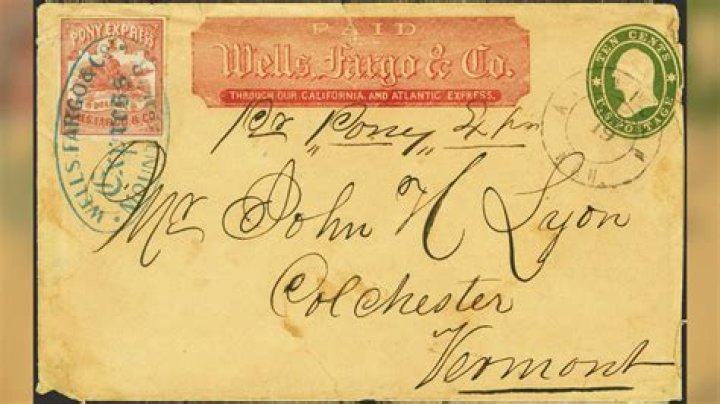 PONY EXPRESS
WELLS, FARGO & CO.
WELLS. FARGO & Co.
PAID
Wells, Fargo & Co.
THROUGH OUR CALIFORNIA AND ATLANTIC EXPRESS.
TEN CENTS
U.S. POSTAGE
19
Pr "Pony" Ex
Mr John H Lyon
Colchester
Vermont